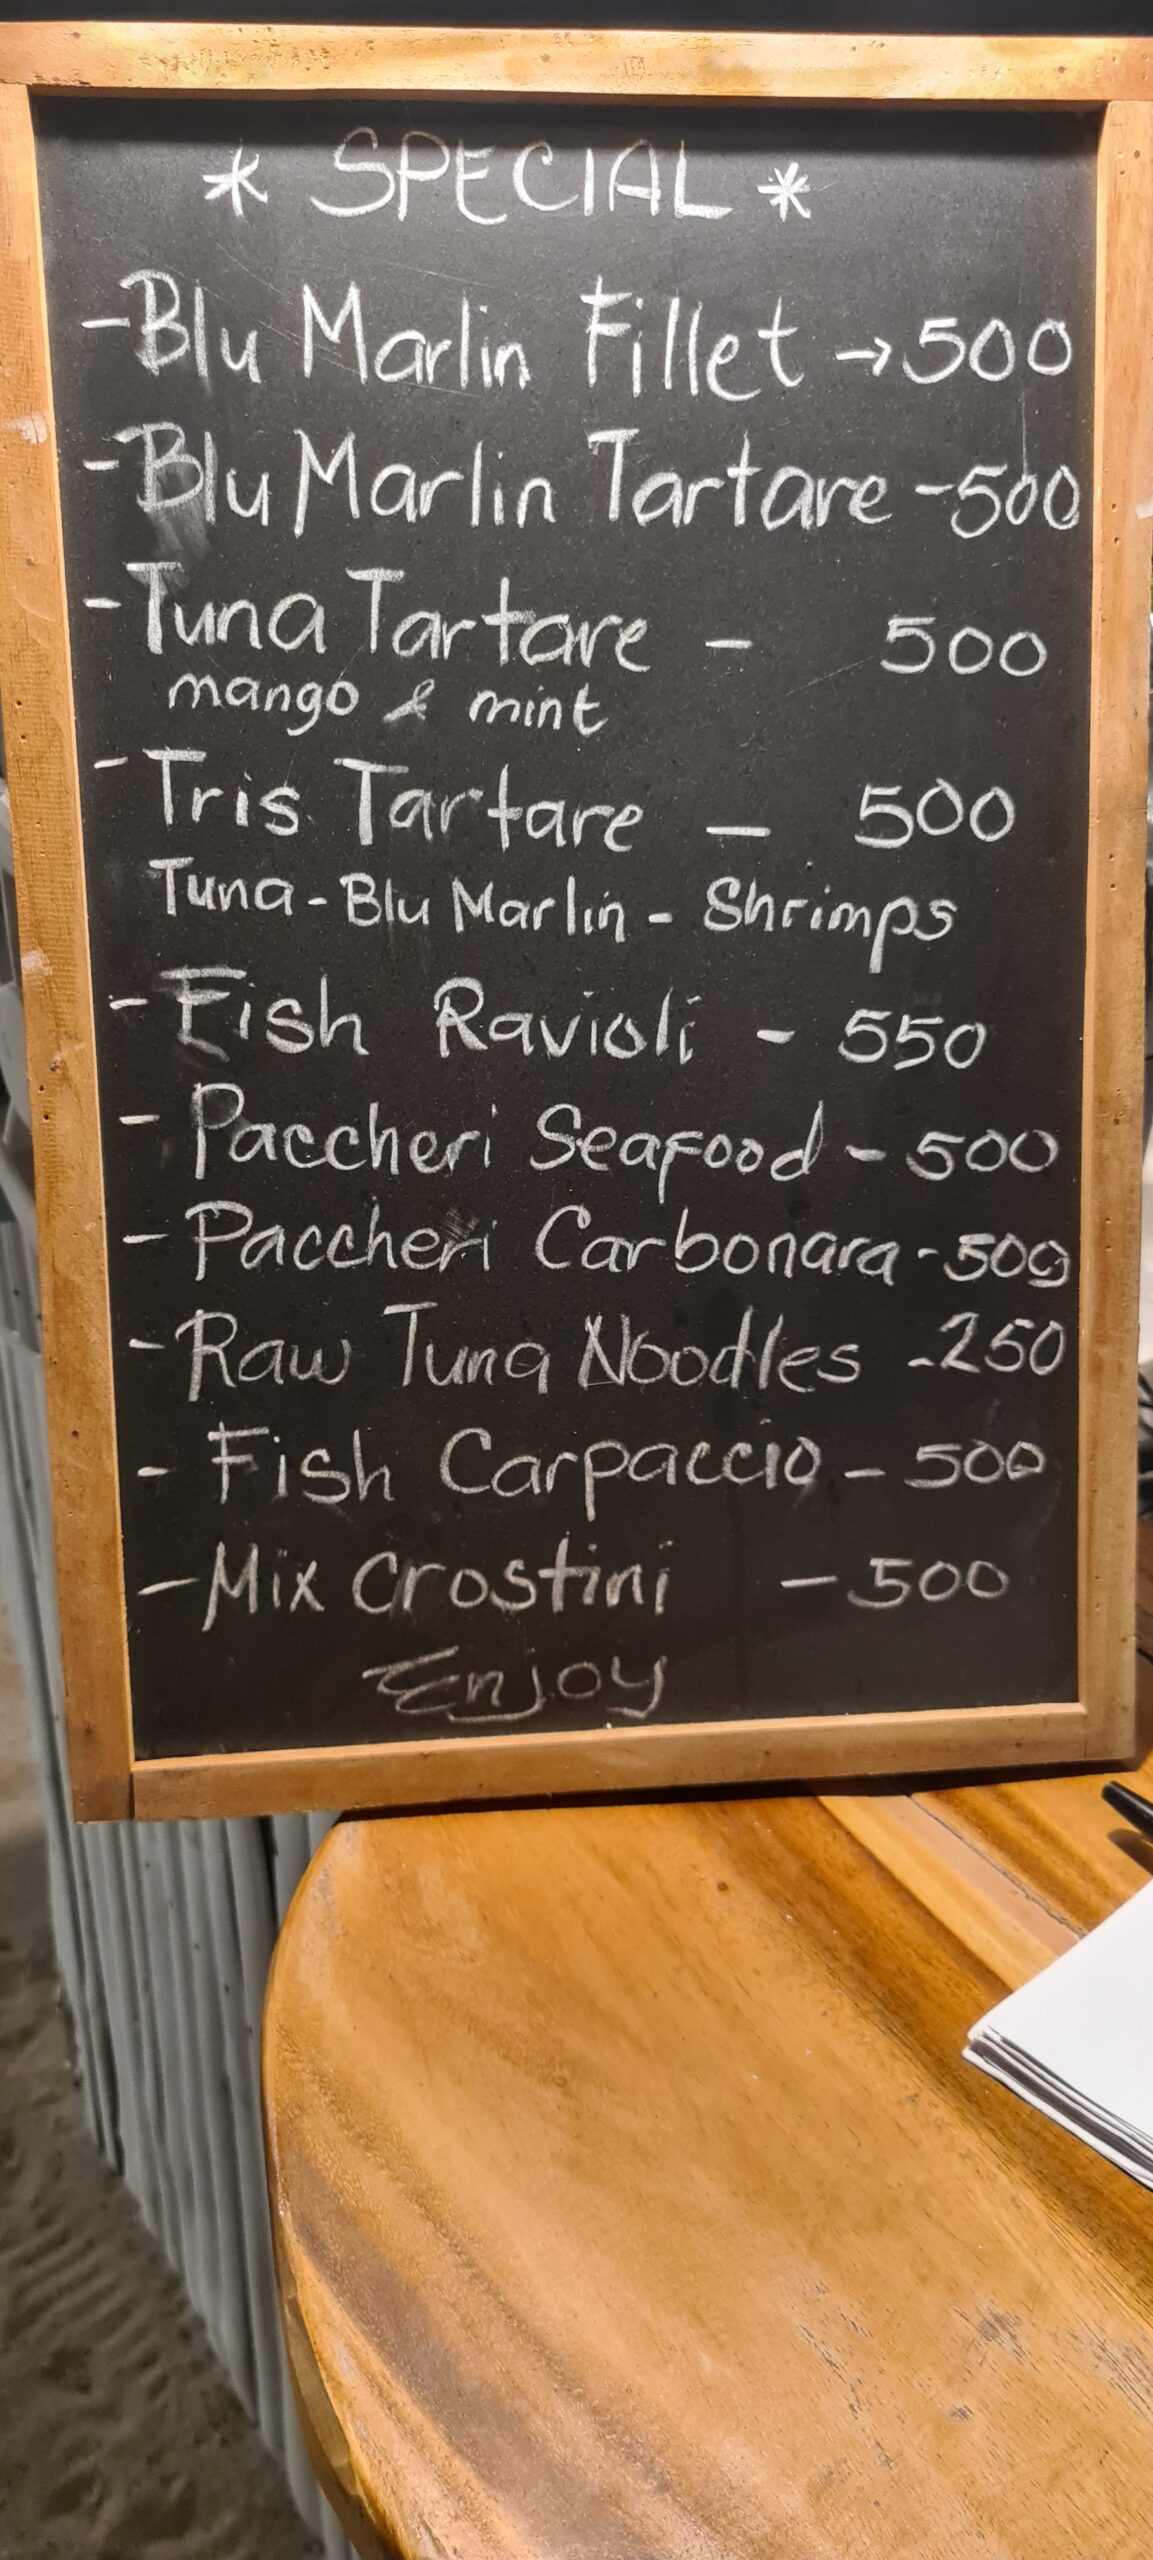 * SPECIAL *
- Blu Marlin Fillet → 500
- Blu Marlin Tartare - 500
- Tuna Tartare - 500
mango & mint
- Tris Tartare - 500
Tuna - Blu Marlin - Shrimps
- Fish Ravioli - 550
- Paccheri Seafood - 500
- Paccheri Carbonara - 500
- Raw Tuna Noodles - 250
- Fish Carpaccio - 500
- Mix Crostini - 500
Enjoy